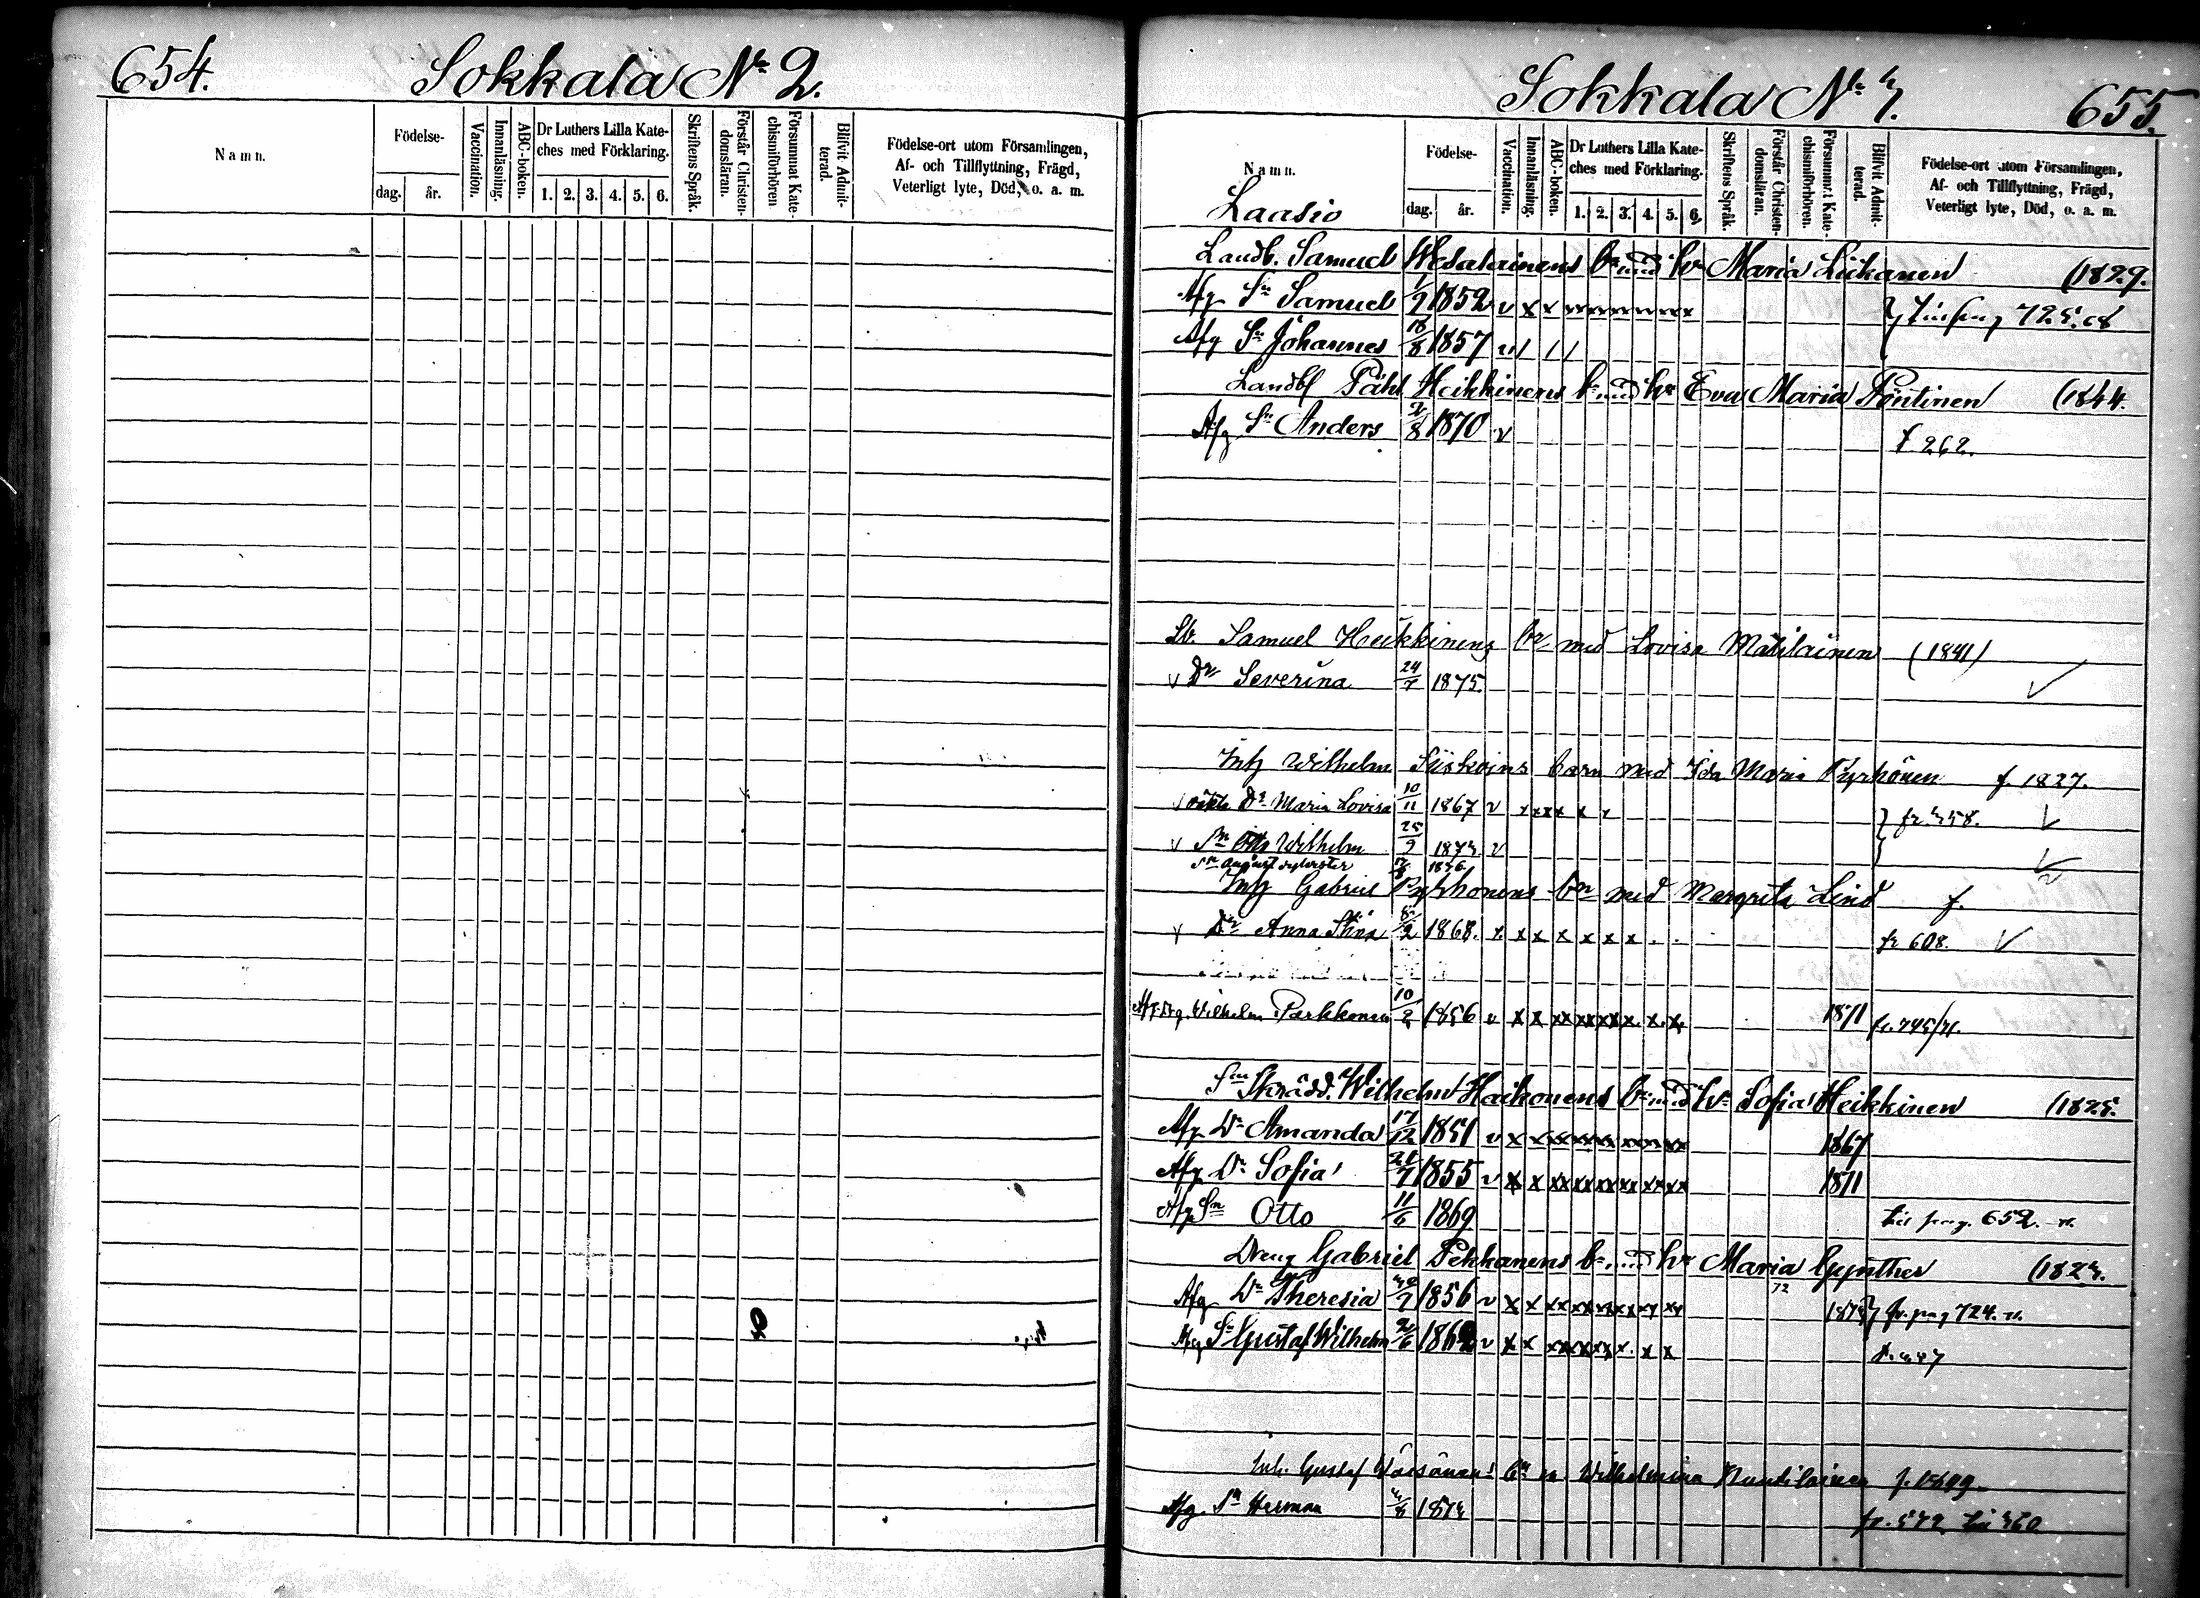 654. Sokkala No 2.
Namn.
Födelse-
dag. år.
Vaccination.
Innanläsning.
ABC-boken.
Dr Luthers Lilla Kate-
ches med Förklaring.
1. 2. 3. 4. 5. 6.
Skriftens Språk.
Förstår Christen-
domsläran.
Försummat Kate-
chismiförhören
Blifvit Admit-
terad.
Födelse-ort utom Församlingen,
Af- och Tillflyttning, Frägd,
Veterligt lyte, Död, o. a. m.
Sokkala No 3. 655.
Namn.
Laasio
Födelse-
dag. år.
Vaccination.
Innanläsning.
ABC-boken.
Dr Luthers Lilla Kate-
ches med Förklaring.
1. 2. 3. 4. 5. 6.
Skriftens Språk.
Förstår Christen-
domsläran.
Försumm. Kate-
chismiförhören.
Blifvit Admit-
terad.
Födelse-ort utom Församlingen,
Af- och Tillflyttning, Frägd,
Veterligt lyte, Död, o. a. m.
Landb. Samuel Wesalainens br med hr Maria Liikanen (1829.
Afg Sn Samuel 1/9 1852 v x x
Afg Sn Johannes 18/8 1857
Landb Påhl Heikkinens br med hr Eva Maria Pöntinen (1844.
Afg Sn Anders 2/8 1870 v f. 262.
Lb. Samuel Heikkinens br med Lovisa Matilainen (1841)
v Dr Severina 24/7 1875.
Inh Wilhelm Siiskoins barn med Ida Maria Pyrhönen f. 1827.
Dr Maria Lovisa 10/11 1867 v x x x x x
v Sn Otto Wilhelm 25/9 1873 v
Sn August Sylvester 1876
Inh Gabriel Pyrhönens br med Margreta Lind f.
v Dr Anna Stina 8/2 1868. x. x x x x x x fr 608.
Afg Drg. Wilhelm Parkkonen 10/2 1856 v x x xx xx xx x. x. x 1871 fr. 745/71.
Sn Skrädd. Wilhelm Haikonens br med hr Sofia Heikkinen (1825.
Afg Dr Amanda 17/12 1851 v x x 1867
Afg Dr Sofia 21/7 1855 v x x xx xx xx xx xx xx 1871
Afg Sn Otto 11/6 1869 till pag. 652.
Dreng Gabriel Pekkanens br med hr Maria Gynther (1823.
Afg Dr Theresia 30/7 1856 v x x 1873 fr. pag 724.
Afg Sn Gustaf Wilhelm 2/6 1862 v x x
Inh. Gustaf Wäisänens br m Wilhelmina Nuutilainen f. 1849.
Afg. Sn Herman 3/8 1873 fr. 572 till 360